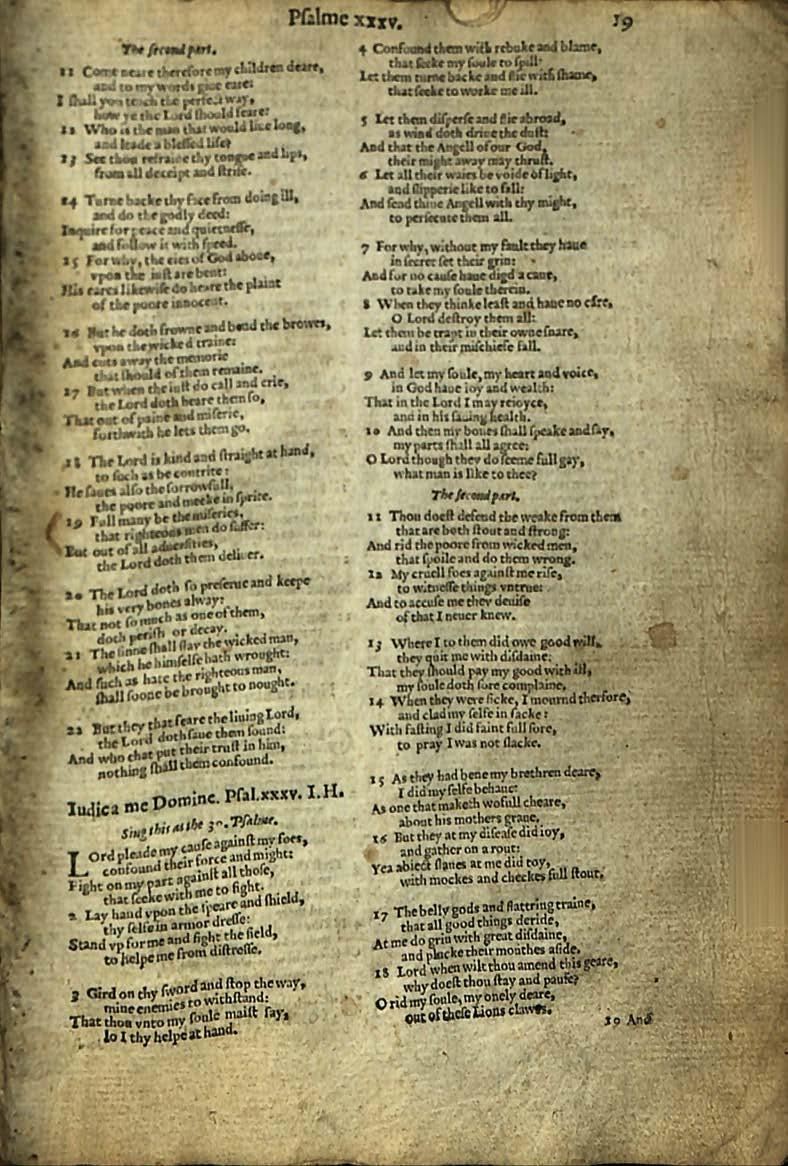 Psalme xxxv.
19
The second part.
11 Come neare therefore my children deare,
and to my words giue eare:
I shall you teach the perfect way,
how ye the Lord should feare:
12 Who is the man that would liue long,
and leade a blessed life?
13 See thou refraine thy tongue and lips,
from all deceipt and strife.
14 Turne backe thy face from doing ill,
and do the godly deed:
Inquire for peace and quietnesse,
and follow it with speed.
15 For why, the eies of God aboue,
vpon the iust are bent:
His eares likewise do heare the plaint
of the poore innocent.
16 But he doth frowne and bend the browes,
vpon the wicked traine:
And cuts away the memorie
that should of them remaine.
17 But when the iust do call and crie,
the Lord doth heare them so,
That out of paine and miserie,
forthwith he lets them go.
18 The Lord is kind and straight at hand,
to such as be contrite:
He saues also the sorrowfull,
the poore and meeke in sprite.
19 Full many be the miseries,
that righteous men do suffer:
But out of all aduersities,
the Lord doth them deliuer.
20 The Lord doth so preserue and keepe
his very bones alway:
That not so much as one of them,
doth perish or decay.
21 The sinne shall slay the wicked man,
which he himselfe hath wrought:
And such as hate the righteous man,
shall soone be brought to nought.
22 But they that feare the liuing Lord,
the Lord doth saue them sound:
And who that put their trust in him,
nothing shall them confound.
Iudica me Domine. Psal.xxxv. I.H.
Sing this at the 30. Psalme.
LOrd pleade my cause against my foes,
confound their force and might:
Fight on my part against all those,
that seeke with me to fight.
2 Lay hand vpon the speare and shield,
thy selfe in armor dresse:
Stand vp for me and fight the field,
to helpe me from distresse.
3 Gird on thy sword and stop the way,
mine enemies to withstand:
That thou vnto my soule maist say,
lo I thy helpe at hand.
4 Confound them with rebuke and blame,
that seeke my soule to spill:
Let them turne backe and flie with shame,
that seeke to worke me ill.
5 Let them disperse and flie abroad,
as wind doth driue the dust:
And that the Angell of our God,
their might away may thrust.
6 Let all their waies be voide of light,
and slipperie like to fall:
And send thine Angell with thy might,
to persecute them all.
7 For why, without my fault they haue
in secret set their grin:
And for no cause haue digd a caue,
to take my soule therein.
8 When they thinke least and haue no care,
O Lord destroy them all:
Let them be trapt in their owne snare,
and in their mischiefe fall.
9 And let my soule, my heart and voice,
in God haue ioy and wealth:
That in the Lord I may reioyce,
and in his sauing health.
10 And then my bones shall speake and say,
my parts shall all agree:
O Lord though they do seeme full gay,
what man is like to thee?
The second part.
11 Thou doest defend the weake from them
that are both stout and strong:
And rid the poore from wicked men,
that spoile and do them wrong.
12 My cruell foes against me rise,
to witnesse things vntrue:
And to accuse me they deuise
of that I neuer knew.
13 Where I to them did owe good will,
they quit me with disdaine:
That they should pay my good with ill,
my soule doth sore complaine,
14 When they were sicke, I mournd therfore,
and clad my selfe in sacke:
With fasting I did faint full sore,
to pray I was not slacke.
15 As they had bene my brethren deare,
I did my selfe behaue:
As one that maketh wofull cheare,
about his mothers graue,
16 But they at my disease did ioy,
and gather on a rout:
Yea abiect slaues at me did toy,
with mockes and checkes full stout.
17 The belly gods and flattring traine,
that all good things deride,
At me do grin with great disdaine,
and plucke their mouthes aside.
18 Lord when wilt thou amend this geare,
why doest thou stay and pause?
O rid my soule, my onely deare,
out of these Lions clawes.
19 And